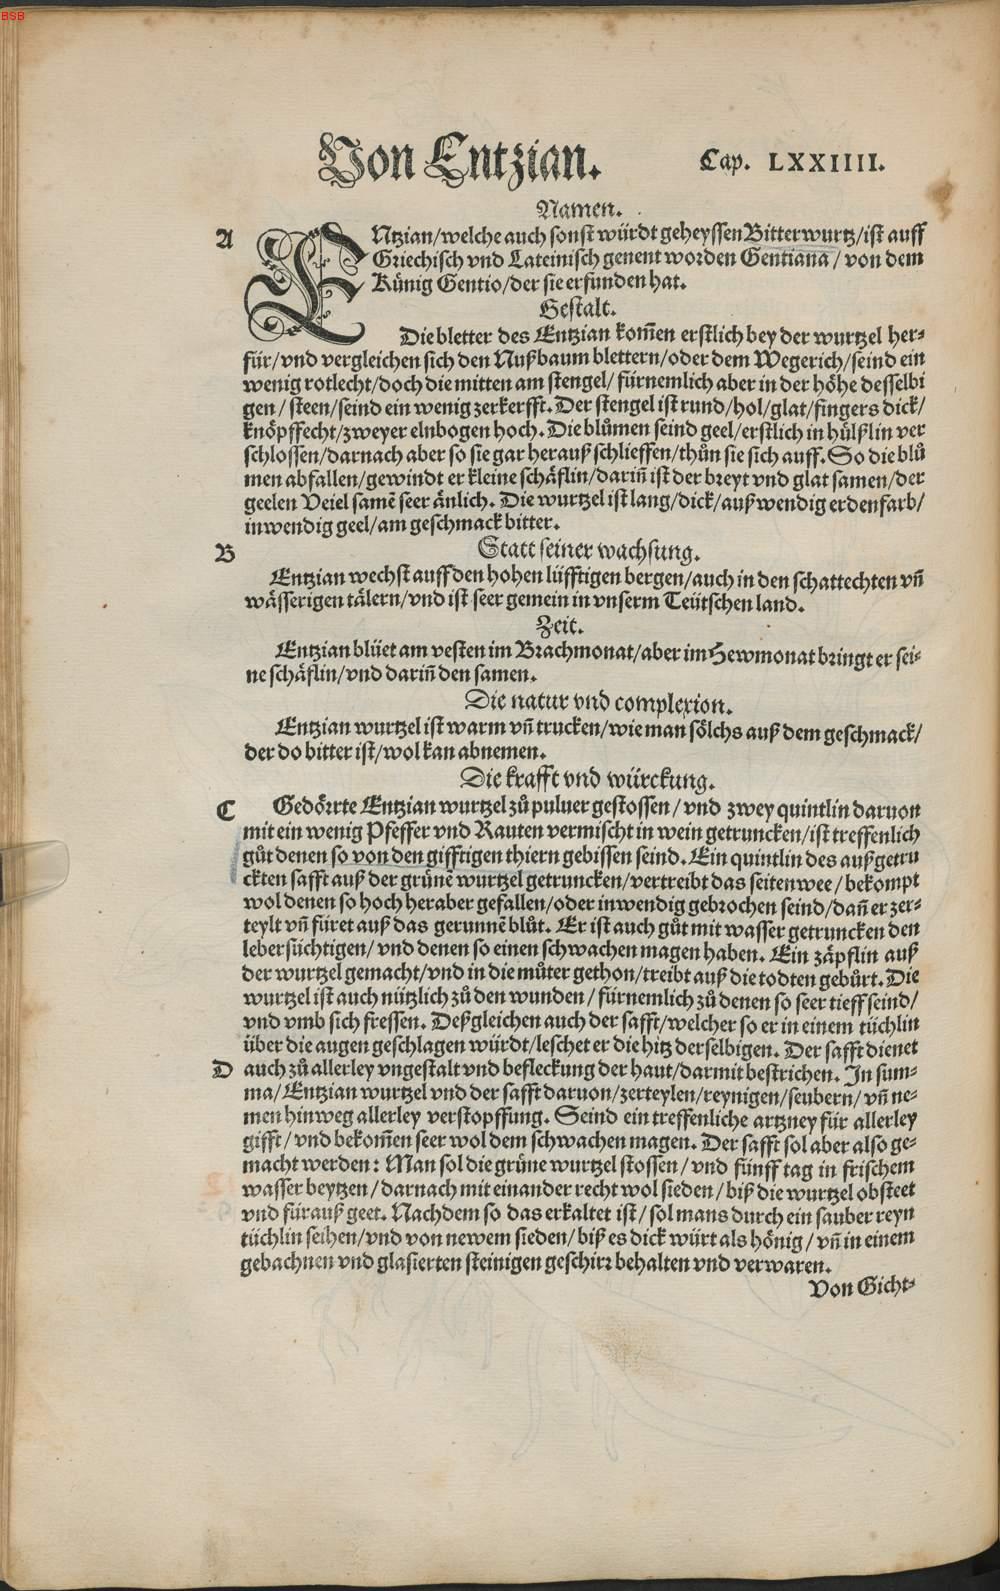 BSB
Von Entzian. Cap. LXXIIII.
Namen.
A ENtzian/welche auch sonst würdt geheyssen Bitterwurtz/ist auff
Griechisch vnd Lateinisch genent worden Gentiana/ von dem
Künig Gentio/der sie erfunden hat.
Gestalt.
Die bletter des Entzian kom̃en erstlich bey der wurtzel her⸗
für/vnd vergleichen sich den Nußbaum blettern/oder dem Wegerich/seind ein
wenig rotlecht/doch die mitten am stengel/ fürnemlich aber in der höhe desselbi
gen/ steen/seind ein wenig zerkerfft. Der stengel ist rund/hol/glat/fingers dick/
knöpffecht/zweyer elnbogen hoch. Die blůmen seind geel/erstlich in hülßlin ver
schlossen/darnach aber so sie gar herauß schlieffen/thůn sie sich auff. So die blů
men abfallen/gewindt er kleine schäflin/dariñ ist der breyt vnd glat samen/der
geelen Veiel samẽ seer änlich. Die wurtzel ist lang/dick/außwendig erdenfarb/
inwendig geel/am geschmack bitter.
B Statt seiner wachsung.
Entzian wechst auff den hohen lüfftigen bergen/auch in den schattechten vñ
wässerigen tälern/vnd ist seer gemein in vnserm Teütschen land.
Zeit.
Entzian blüet am vesten im Brachmonat/aber im Hewmonat bringt er sei⸗
ne schäflin/vnd dariñ den samen.
Die natur vnd complexion.
Entzian wurtzel ist warm vñ trucken/wie man sölchs auß dem geschmack/
der do bitter ist/wol kan abnemen.
Die krafft vnd würckung.
C Gedörrte Entzian wurtzel zů puluer gestossen/ vnd zwey quintlin daruon
mit ein wenig Pfeffer vnd Rauten vermischt in wein getruncken/ist treffenlich
gůt denen so von den gifftigen thiern gebissen seind. Ein quintlin des außgetru
ckten safft auß der grünẽ wurtzel getruncken/vertreibt das seitenwee/ bekompt
wol denen so hoch heraber gefallen/oder inwendig gebrochen seind/dañ er zer⸗
teylt vñ füret auß das gerunnẽ blůt. Er ist auch gůt mit wasser getruncken den
lebersüchtigen/ vnd denen so einen schwachen magen haben. Ein zäpflin auß
der wurtzel gemacht/vnd in die můter gethon/treibt auß die todten gebůrt. Die
wurtzel ist auch nützlich zů den wunden/ fürnemlich zů denen so seer tieff seind/
vnd vmb sich fressen. Deßgleichen auch der safft/welcher so er in einem tüchlin
über die augen geschlagen würdt/leschet er die hitz derselbigen. Der safft dienet
D auch zů allerley vngestalt vnd befleckung der haut/darmit bestrichen. In sum⸗
ma/Entzian wurtzel vnd der safft daruon/zerteylen/reynigen/seubern/ vñ ne⸗
men hinweg allerley verstopffung. Seind ein treffenliche artzney für allerley
gifft/ vnd bekom̃en seer wol dem schwachen magen. Der safft sol aber also ge⸗
macht werden: Man sol die grüne wurtzel stossen/ vnd fünff tag in frischem
wasser beytzen/darnach mit einander recht wol sieden/ biß die wurtzel obsteet
vnd fürauß geet. Nachdem so das erkaltet ist/ sol mans durch ein sauber reyn
tüchlin seihen/vnd von newem sieden/ biß es dick würt als hönig/ vñ in einem
gebachnen vnd glasierten steinigen geschirr behalten vnd verwaren.
Von Gicht⸗